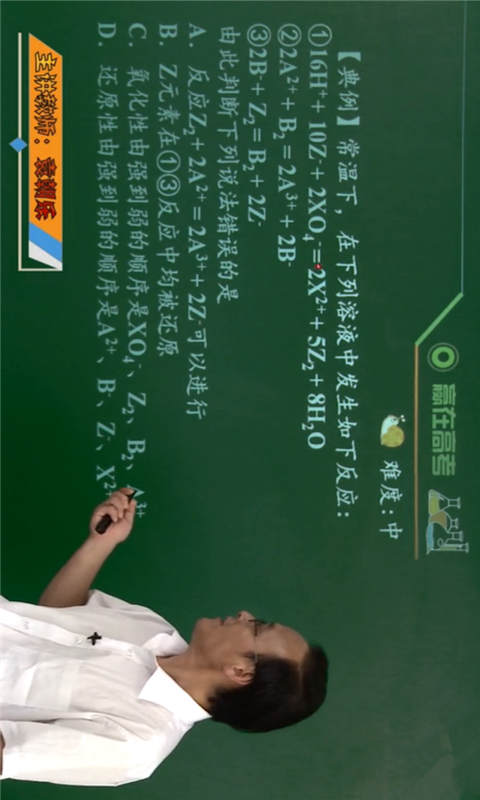 赢在高考
难度:中
【典例】常温下，在下列溶液中发生如下反应：
①16H⁺ + 10Z⁻ + 2XO₄⁻ = 2X²⁺ + 5Z₂ + 8H₂O
②2A²⁺ + B₂ = 2A³⁺ + 2B⁻
③2B⁻ + Z₂ = B₂ + 2Z⁻
由此判断下列说法错误的是
A. 反应Z₂ + 2A²⁺ = 2A³⁺ + 2Z⁻可以进行
B. Z元素在①③反应中均被还原
C. 氧化性由强到弱的顺序是XO₄⁻、Z₂、B₂、A³⁺
D. 还原性由强到弱的顺序是A²⁺、B⁻、Z⁻、X²⁺
主讲教师：